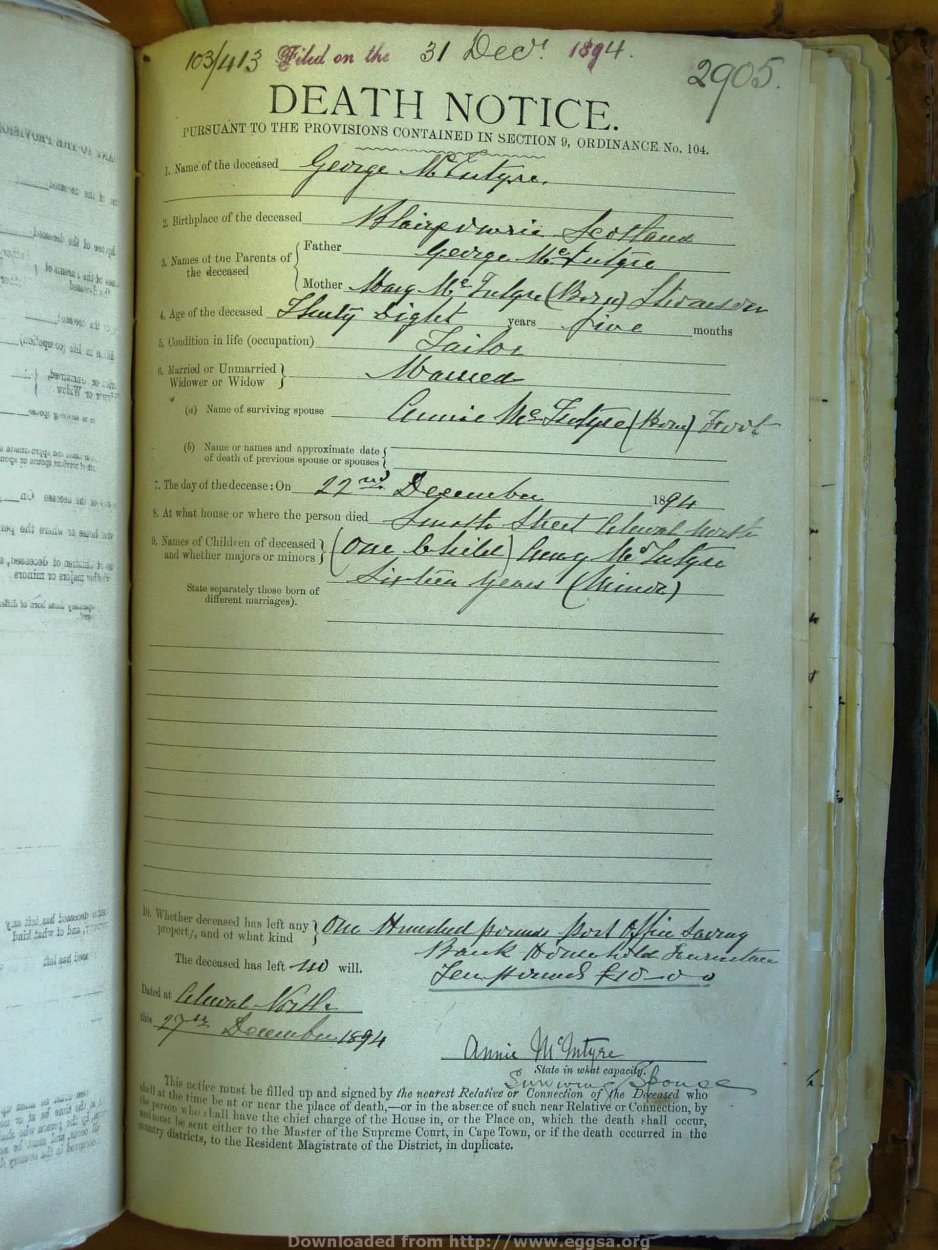 103/413 Filed on the 31 Decr 1894.
2905.
DEATH NOTICE.
PURSUANT TO THE PROVISIONS CONTAINED IN SECTION 9, ORDINANCE No. 104.
1. Name of the deceased George McIntyre.
2. Birthplace of the deceased Blairgowrie Scotland
3. Names of the Parents of the deceased { Father George McIntyre
Mother Mary McIntyre (Born)
4. Age of the deceased Thirty Eight years five months
5. Condition in life (occupation) Tailor
6. Married or Unmarried Widower or Widow } Married
(a) Name of surviving spouse Annie McIntyre (Born)
(b) Name or names and approximate date of death of previous spouse or spouses {
7. The day of the decease: On 22nd December 1894
8. At what house or where the person died Smith Street Aliwal North
9. Names of Children of deceased and whether majors or minors } (One Child) McIntyre
Sixteen years (Minor)
State separately those born of
different marriages).
10. Whether deceased has left any property, and of what kind } One Hundred pounds Post Office Saving
Bank Household Furniture
The deceased has left no will.
Ten pounds £10-0-0
Dated at Aliwal North
this 27th December 1894
Annie McIntyre
State in what capacity.
Surviving Spouse
This notice must be filled up and signed by the nearest Relative or Connection of the Deceased who
shall at the time be at or near the place of death,—or in the absence of such near Relative or Connection, by
the person who shall have the chief charge of the House in, or the Place on, which the death shall occur,
and must be sent either to the Master of the Supreme Court, in Cape Town, or if the death occurred in the
country districts, to the Resident Magistrate of the District, in duplicate.
Downloaded from http://www.eggsa.org